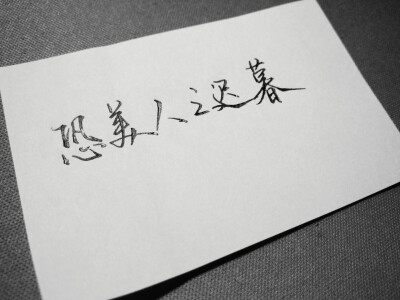 恐美人之迟暮